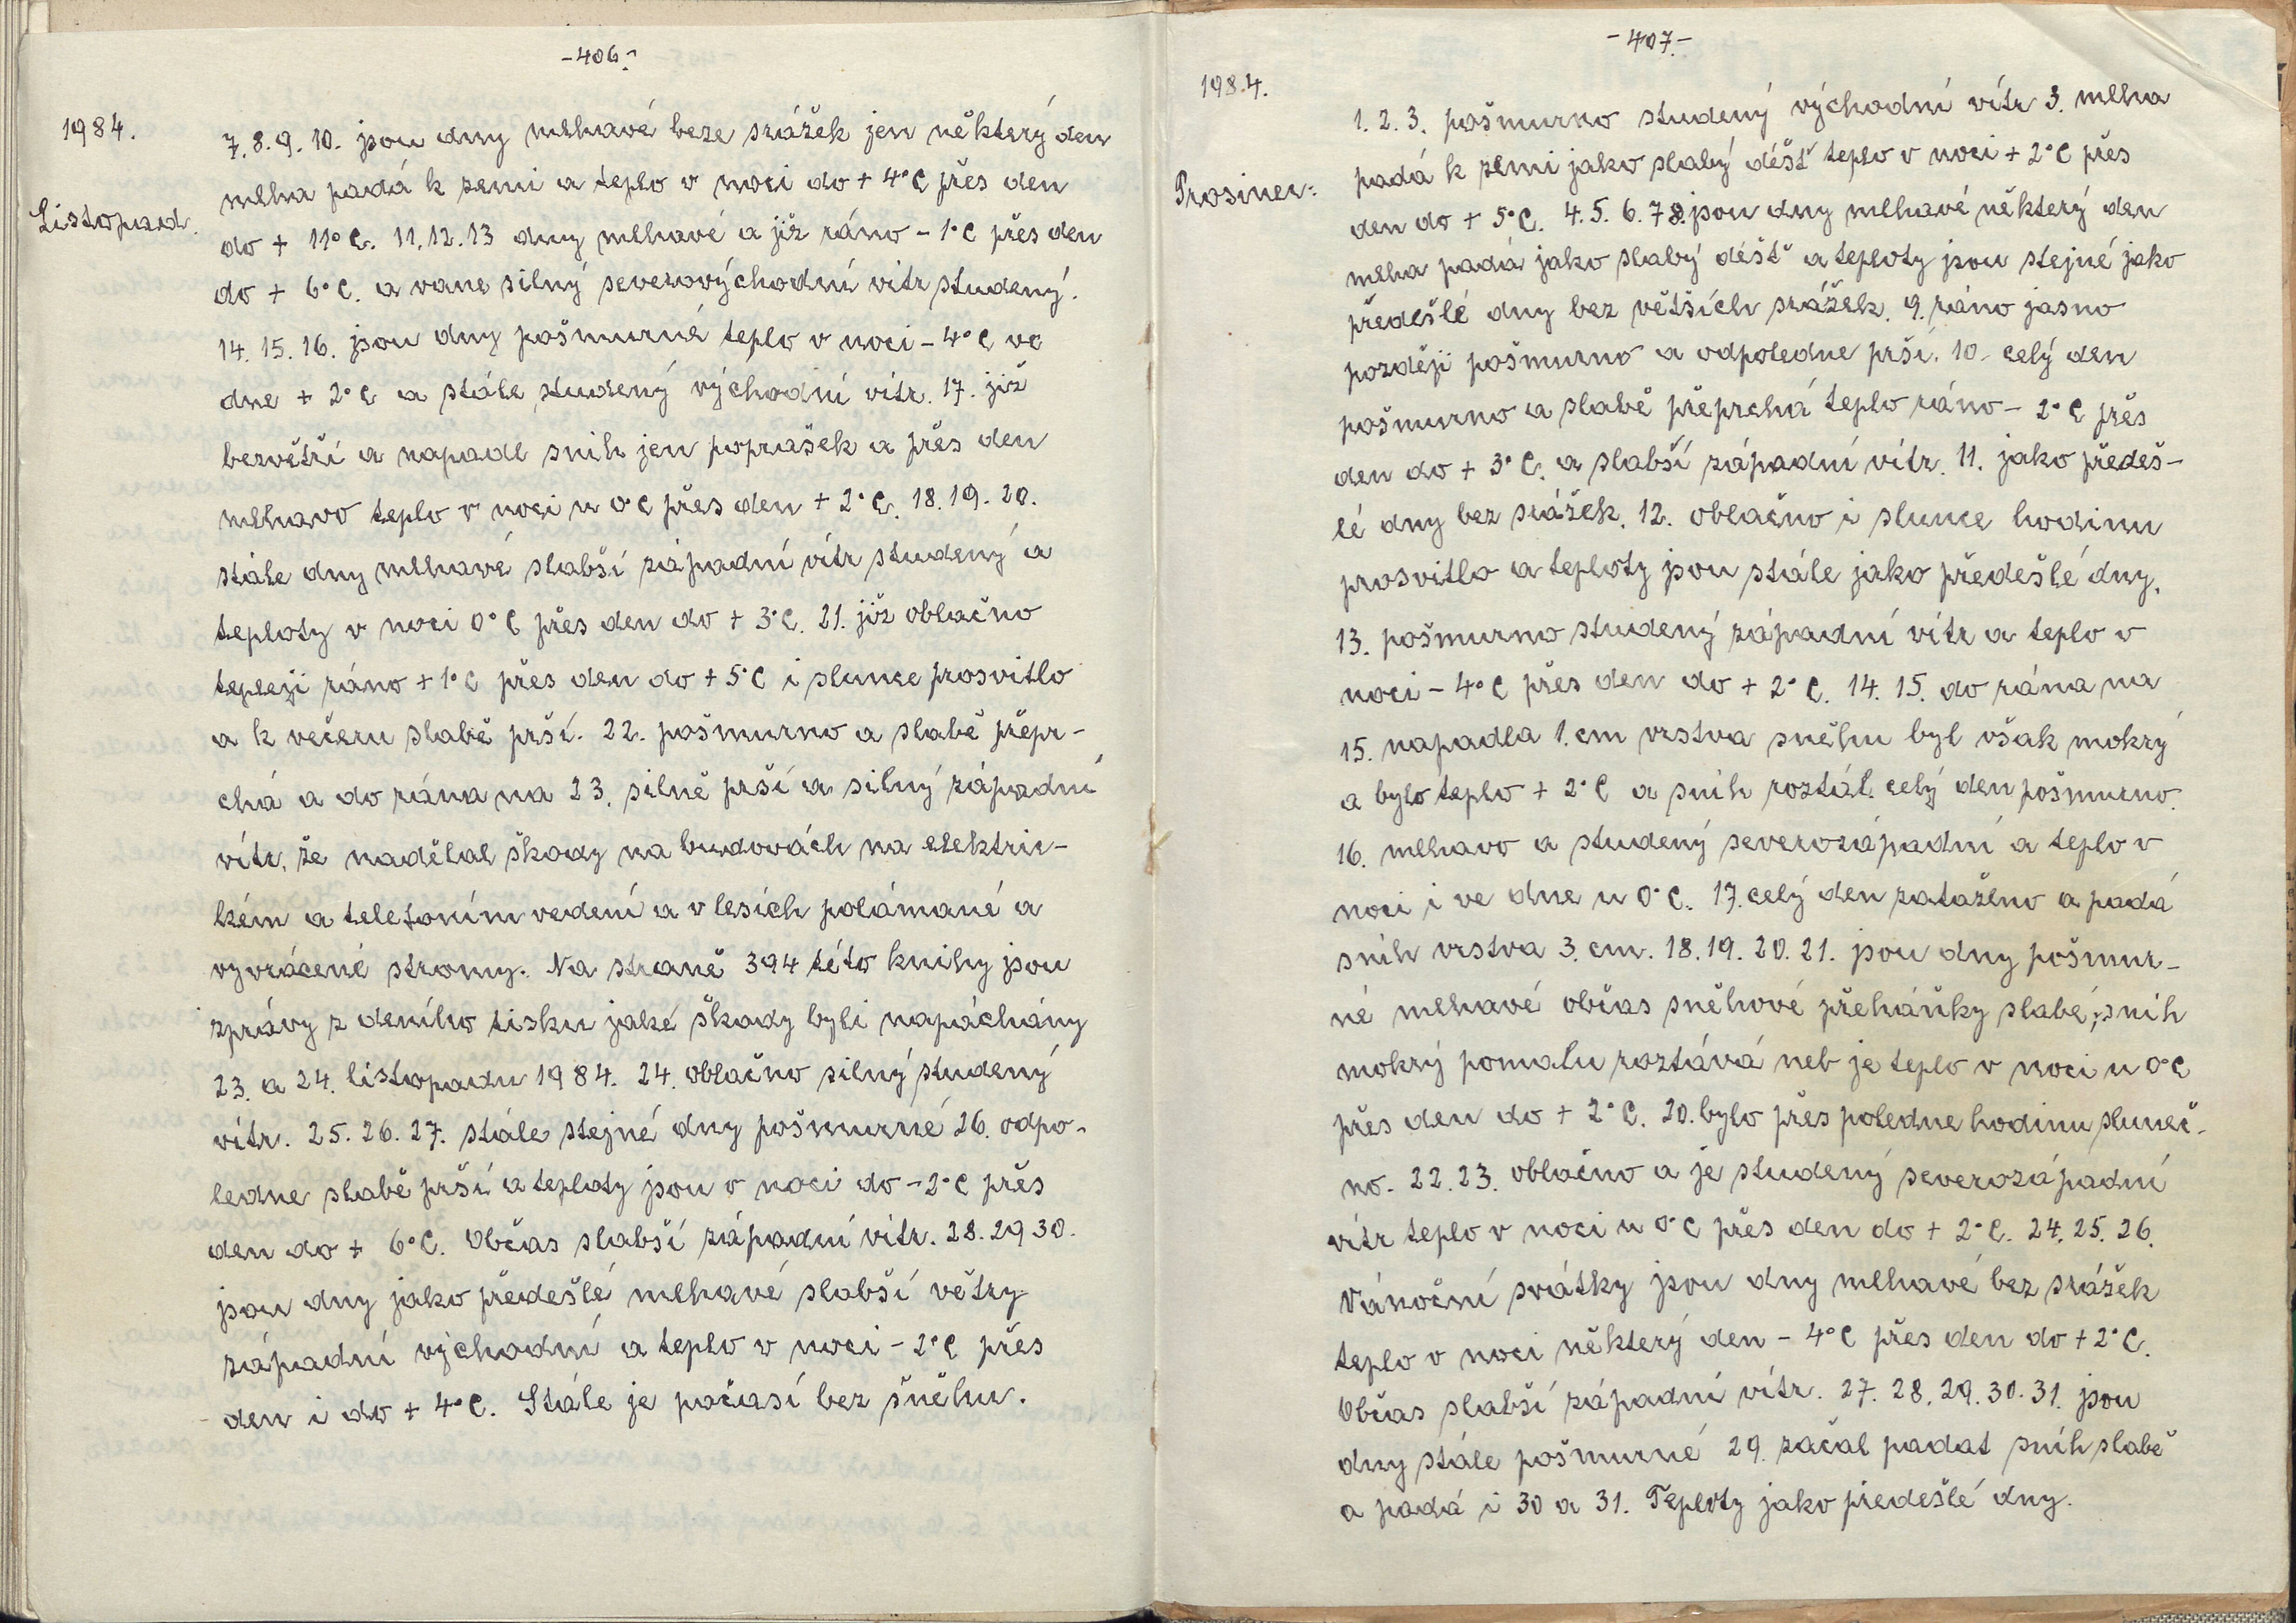 -406.-
1984.
7. 8. 9. 10. jsou dny mlhavé beze srážek jen některý den
mlha padá k zemi a teplo v noci do + 4°C přes den
Listopad.
do + 11°C. 11. 12. 13 dny mlhavé a již ráno - 1°C přes den
do + 6°C. a vane silný severovýchodní vítr studený.
14. 15. 16. jsou dny pošmurné teplo v noci - 4°C ve
dne + 2°C a stále studený východní vítr. 17. již
bezvětří a napadl snih jen poprašek a přes den
mlhavo teplo v noci u 0°C přes den + 2°C. 18. 19. 20.
stále dny mlhavé slabší západní vítr studený a
teploty v noci 0°C přes den do + 3°C. 21. již oblačno
tepleji ráno + 1°C přes den do + 5°C i slunce prosvitlo
a k večeru slabě prší. 22. pošmurno a slabě přepr-
chá a do rána na 23. silně prší a silný západní
vítr, že nadělal škody na budovách na elektric-
kém a telefoním vedení a v lesích polámané a
vyvrácené stromy. Na straně 394 této knihy jsou
zprávy z deního tisku jaké škody byli napáchány
23. a 24. listopadu 1984. 24. oblačno silný studený
vítr. 25. 26. 27. stále stejné dny pošmurné 26. odpo-
ledne slabě prší a teploty jsou v noci do - 2°C přes
den do + 6°C. Občas slabší západní vítr. 28. 29 30.
jsou dny jako předešlé mlhavé slabší větry
západní východní a teplo v noci - 2°C přes
den i do + 4°C. Stále je počasí bez sněhu.
-407.-
1984.
1. 2. 3. pošmurno studený východní vítr 3. mlha
Prosinec:
padá k zemi jako slabý déšť teplo v noci + 2°C přes
den do + 5°C. 4. 5. 6. 7 8. jsou dny mlhavé některý den
mlha padá jako slabý déšť a teploty jsou stejné jako
předešlé dny bez větších srážek. 9. ráno jasno
později pošmurno a odpoledne prší. 10. celý den
pošmurno a slabě přeprchá teplo ráno - 2°C přes
den do + 3°C. a slabší západní vítr. 11. jako předeš-
lé dny bez srážek. 12. oblačno i slunce hodinu
prosvitlo a teploty jsou stále jako předešlé dny.
13. pošmurno studený západní vítr a teplo v
noci - 4°C přes den do + 2°C. 14. 15. do rána na
15. napadla 1. cm vrstva sněhu byl však mokrý
a bylo teplo + 2°C a snih roztál. celý den pošmurno.
16. mlhavo a studený severozápadní a teplo v
noci i ve dne u 0°C. 17. celý den zataženo a padá
sníh vrstva 3. cm. 18. 19. 20. 21. jsou dny pošmur-
né mlhavé občas sněhové přeháňky slabé, sníh
mokrý pomalu roztává neb je teplo v noci u 0°C
přes den do + 2°C. 20. bylo přes poledne hodinu sluneč-
no. 22. 23. oblačno a je studený severozápadní
vítr teplo v noci u 0°C přes den do + 2°C. 24. 25. 26.
Vánoční svátky jsou dny mlhavé bez srážek
teplo v noci některý den - 4°C přes den do + 2°C.
Občas slabší západní vítr. 27. 28. 29. 30. 31. jsou
dny stále pošmurné 29. začal padat sníh slabě
a padá i 30 a 31. Teploty jako předešlé dny.